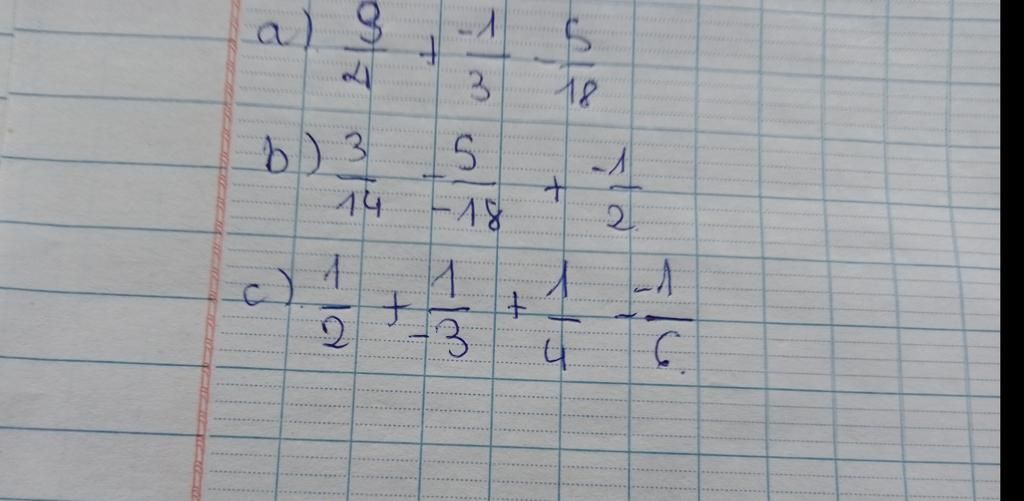 a) 9/4 + -1/3 - 5/18
b) 3/14 - 5/-18 + -1/2
c) 1/2 + 1/-3 + 1/4 - -1/6